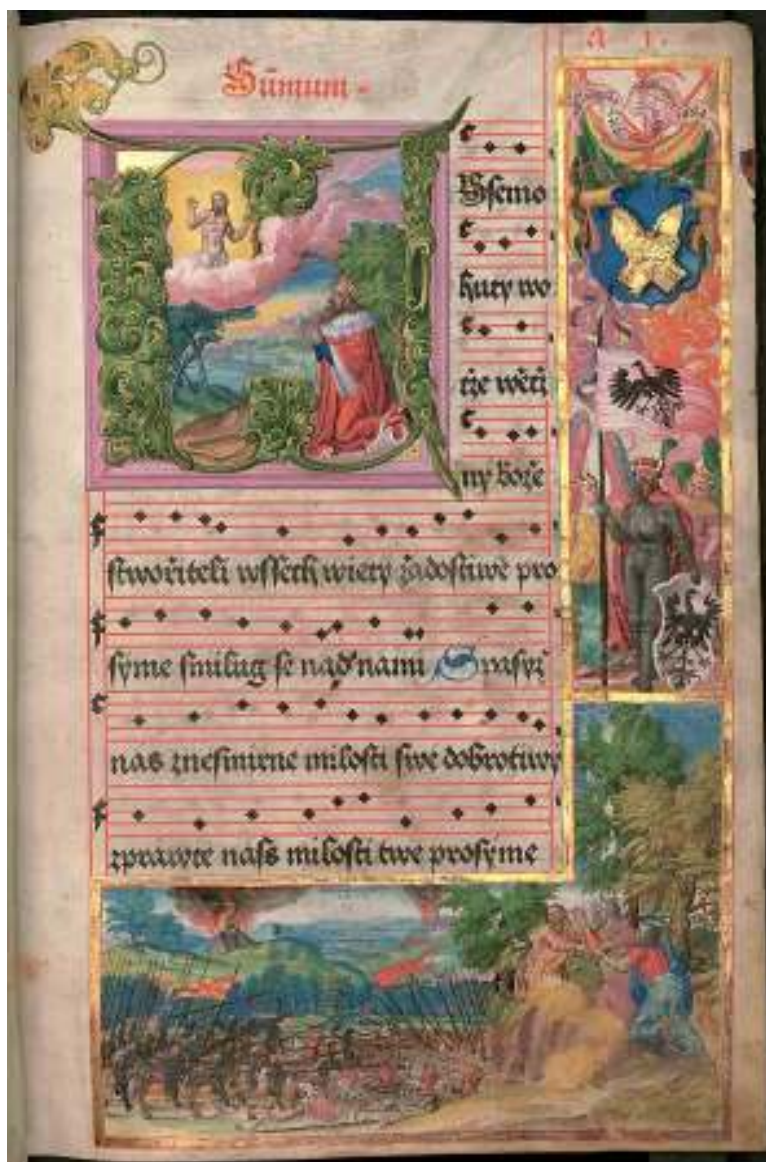 A 1.
Sūmum
Wsemo
huty wo
tże wěcż
ny boże
stworziteli wssech wiery żadostiwě pro
syme smilug se nad nami Spasyż
nas znesmirne milosti swe dobrotiwy
zprawce nass milosti twe prosyme